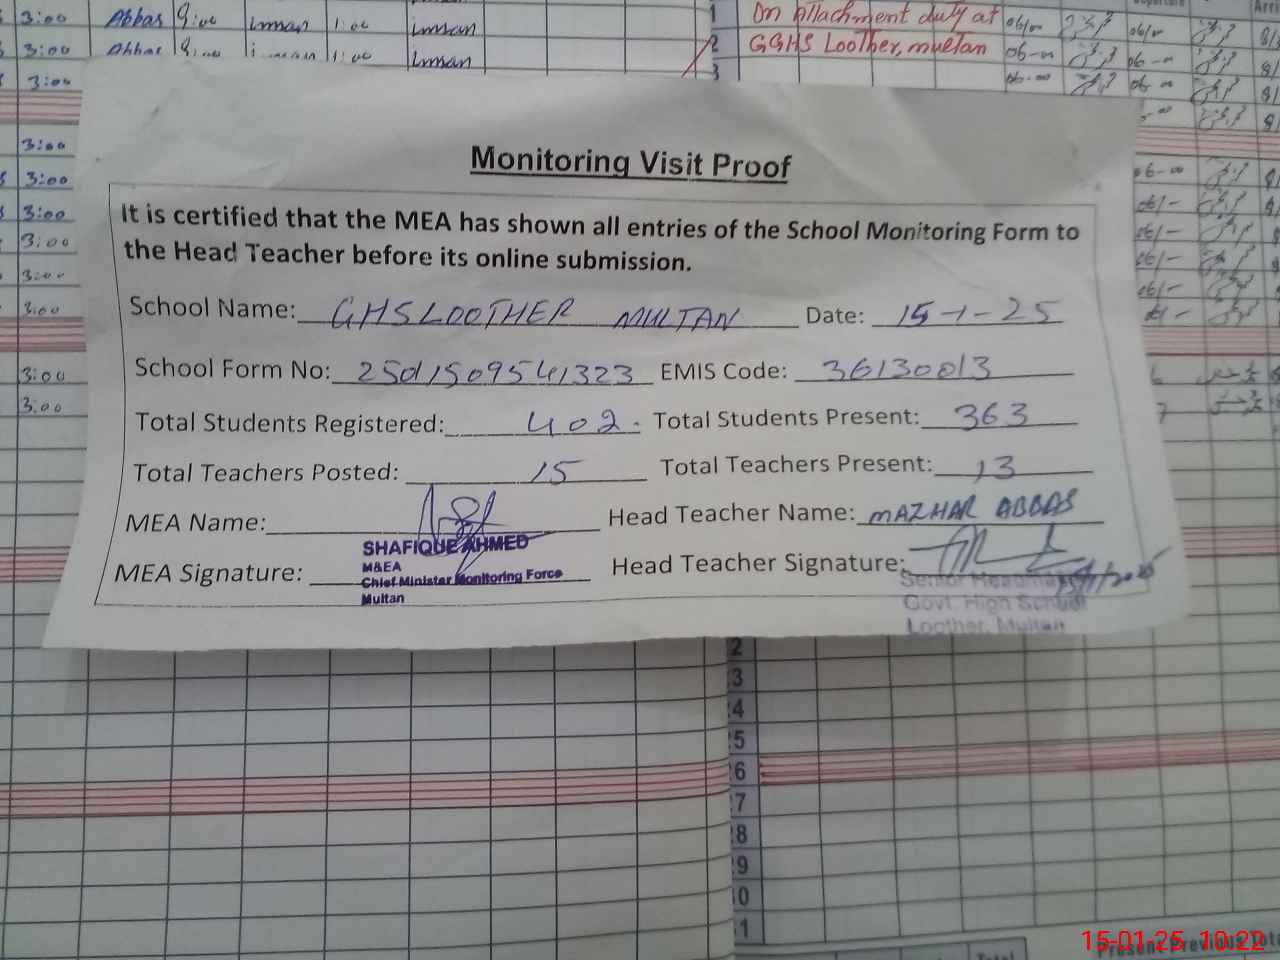 3:00 Abbas 9:00 Iman 1:00 Iman
3:00 Abbas 9:00 Iman 1:00 Iman
3:00
3:00
3:00
3:00
3:00
3:00
3:00
3:00
3:00
1 On Attachment duty at
2 GGHS Loother, multan
3
Monitoring Visit Proof
It is certified that the MEA has shown all entries of the School Monitoring Form to
the Head Teacher before its online submission.
School Name: GHS LOOTHER MULTAN Date: 15-1-25
School Form No: 25011509541323 EMIS Code: 36130013
Total Students Registered: 402. Total Students Present: 363
Total Teachers Posted: 15 Total Teachers Present: 13
MEA Name: Head Teacher Name: MAZHAR ABBAS
SHAFIQUE AHMED
M&EA
Chief Minister Monitoring Force
Multan
MEA Signature: Head Teacher Signature:
Senior Headmaster
Govt. High School
Loother, Multan
2
3
4
5
6
7
8
9
0
1
Total
Present Previous Total
15-01-25 10:22